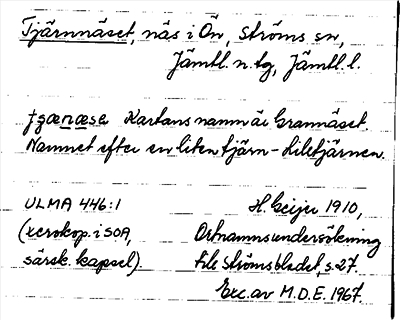 Tjärnnäset, näs i Ön, Ströms sn,
Jämtl. n. tg, Jämtl. l.
Kartans namn är Grannäset.
Namnet efter en liten tjärn - Liletjärnen.
ULMA 446:1
H. Geijer 1910,
(xerokop. i SOA,
Ortnamnsundersökning
särsk. kapsel).
Strömsbladet, s. 27.
Exc. av M.D.E. 1967.